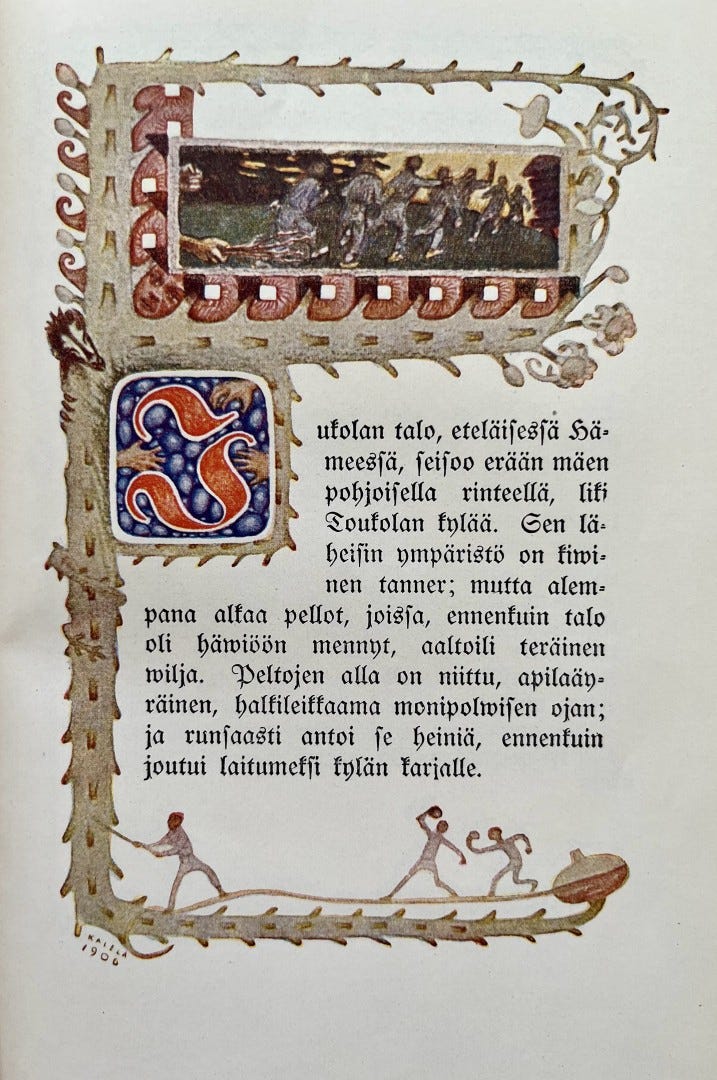 Jukolan talo, eteläisessä Hä-
meessä, seisoo erään mäen
pohjoisella rinteellä, liki
Toukolan kylää. Sen lä-
heisin ympäristö on kiwi-
nen tanner; mutta alem-
pana alkaa pellot, joissa, ennenkuin talo
oli häwiöön mennyt, aaltoili teräinen
wilja. Peltojen alla on niittu, apilaäy-
räinen, halkileikkaama monipolwisen ojan;
ja runsaasti antoi se heiniä, ennenkuin
joutui laitumeksi kylän karjalle.
KALELA
1906